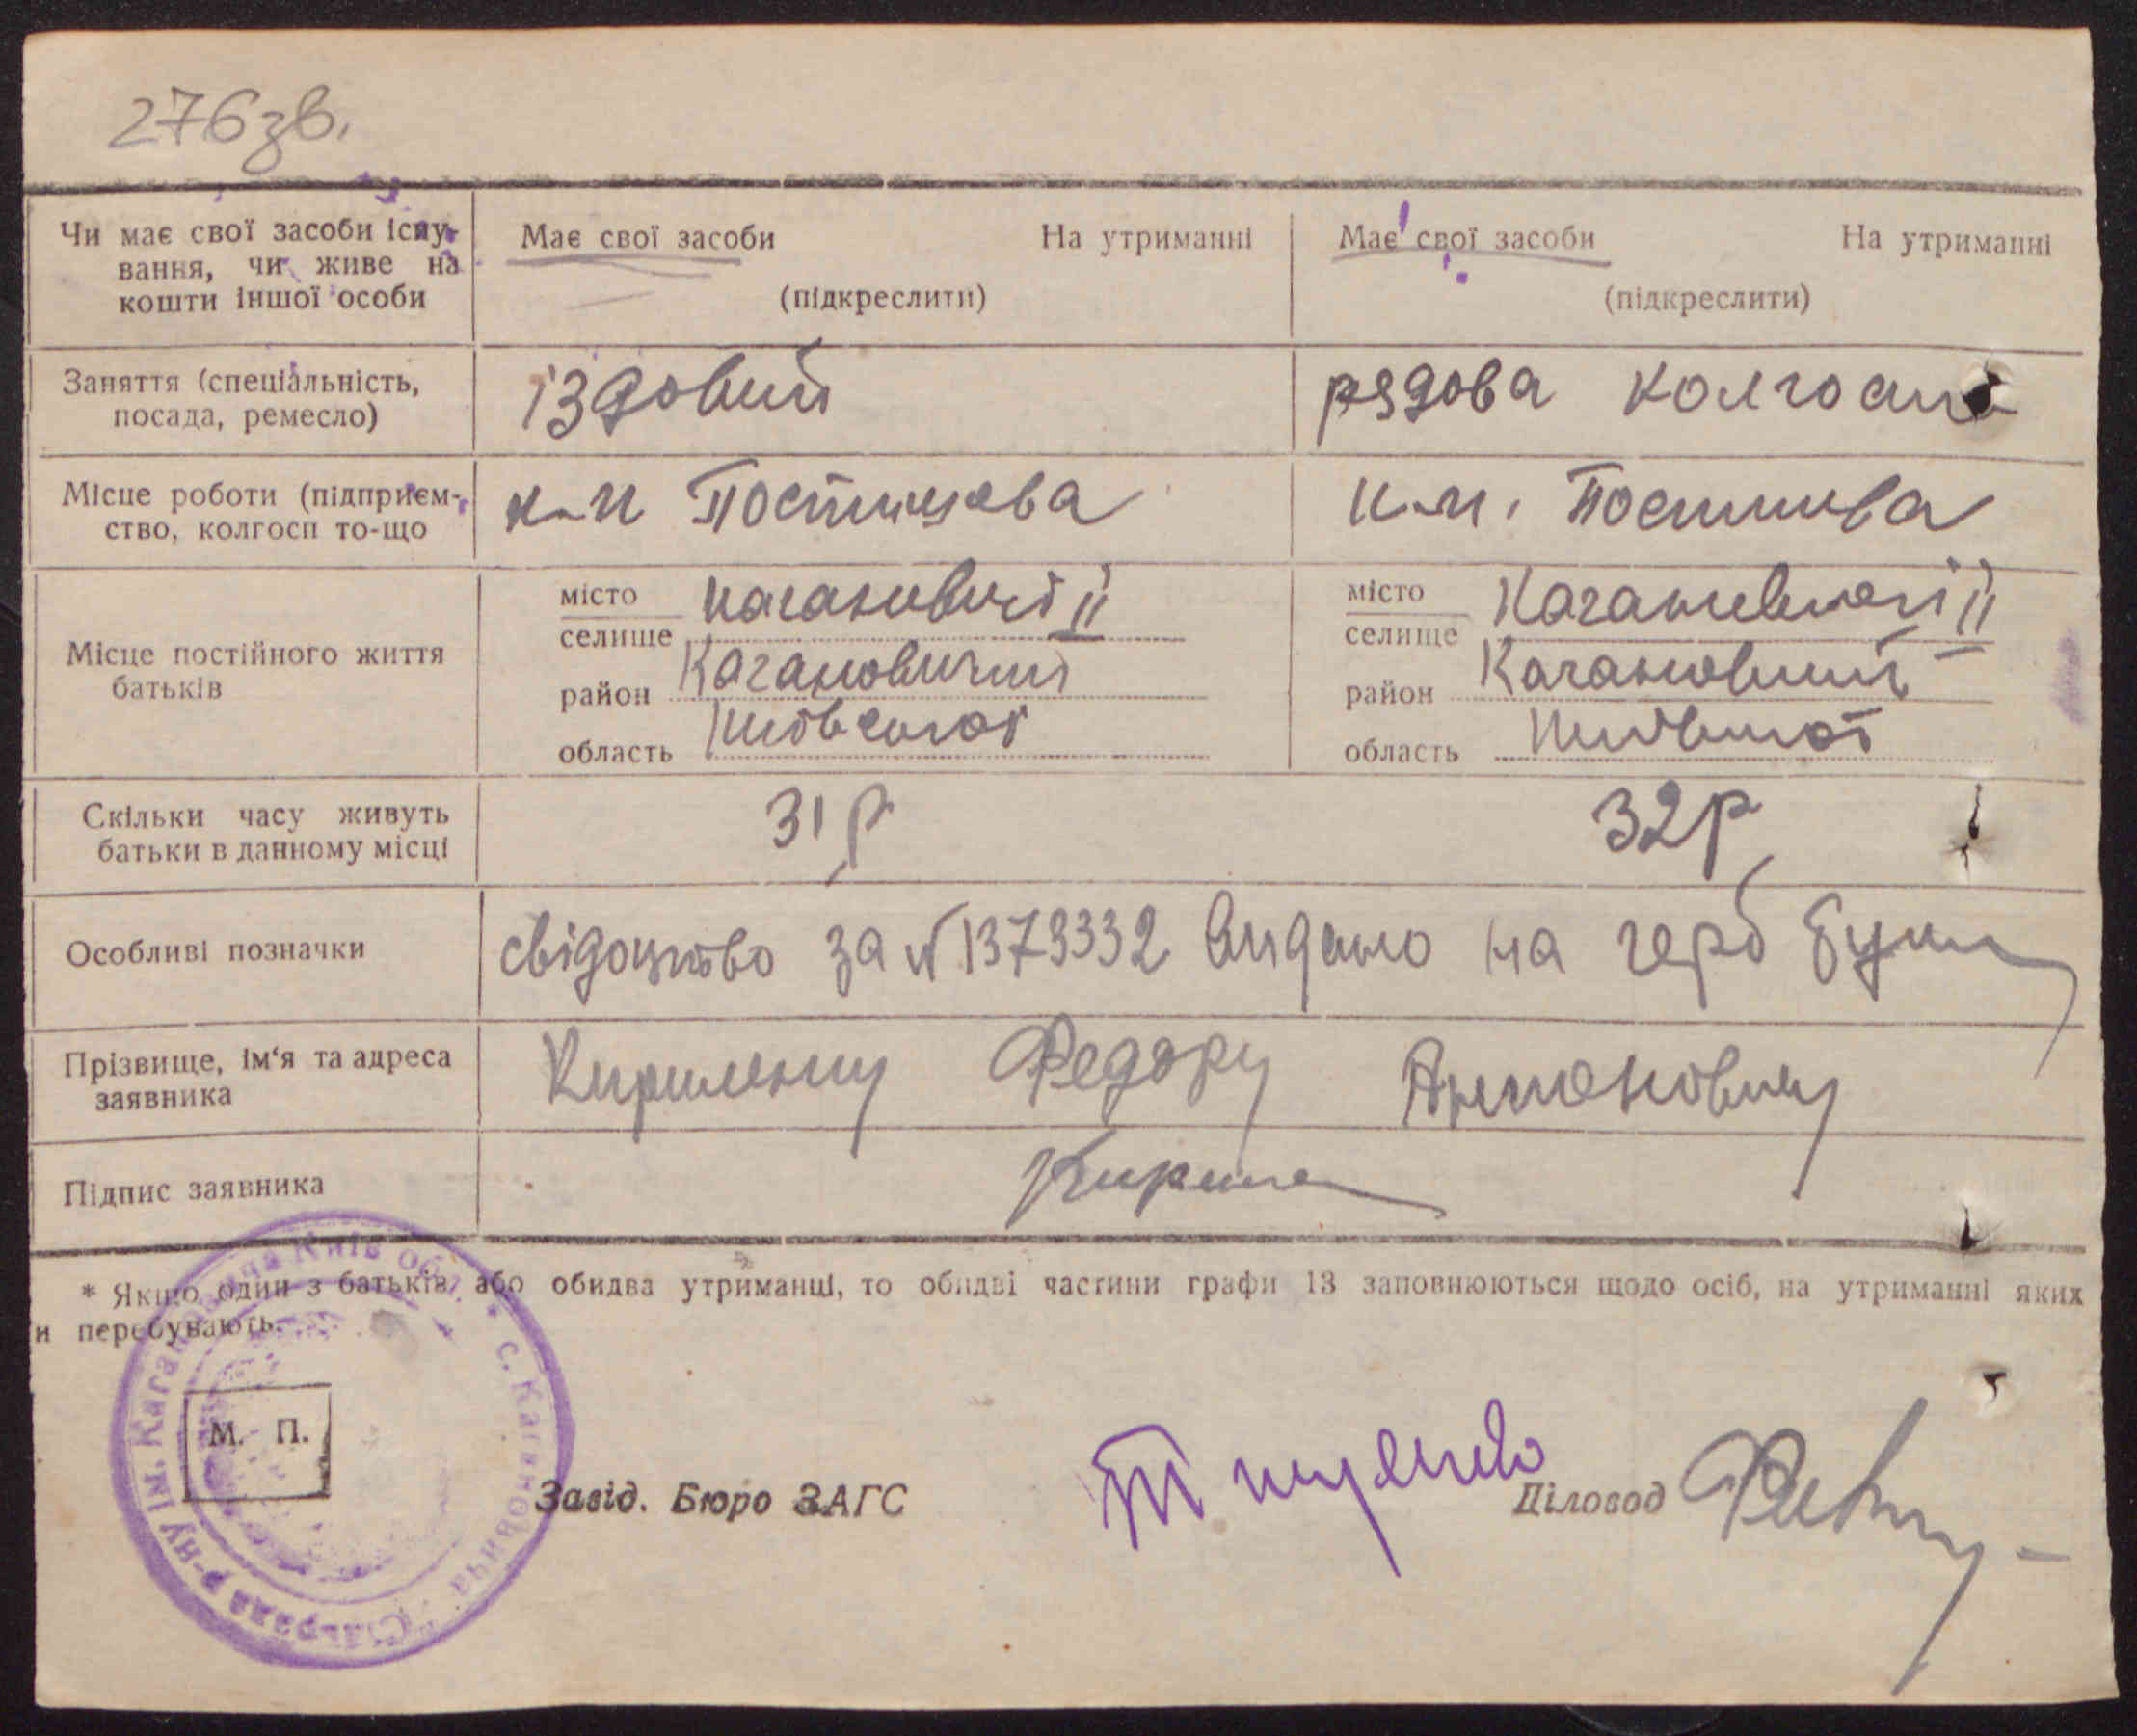 276зв.
Чи має свої засоби існу-
вання, чи живе на
кошти іншої особи
Має свої засоби На утриманні
(підкреслити)
Має свої засоби На утриманні
(підкреслити)
Заняття (спеціальність,
посада, ремесло)
їздовий
рядова колгосп
Місце роботи (підприєм-
ство, колгосп то-що
к-м Постишева
к-м. Постишева
Місце постійного життя
батьків
місто
селище Кагановичі II
район Кагановичий
область Київської
місто
селище Кагановичі II
район
область Київської
Скільки часу живуть
батьки в данному місці
31 р
32 р
Особливі позначки
свідоцтво за № 1373332 видано на герб бум
Прізвище, ім'я та адреса
заявника
Кириленку Федору Антоновичу
Підпис заявника
Кириле
* Якщо один з батьків або обидва утриманці, то обидві частини графи 13 заповнюються щодо осіб, на утриманні яких
и перебувають.
М. П.
Сільрада р-ну ім. Кагановича Київ обл. * с. Кагановича
Завід. Бюро ЗАГС
Діловод